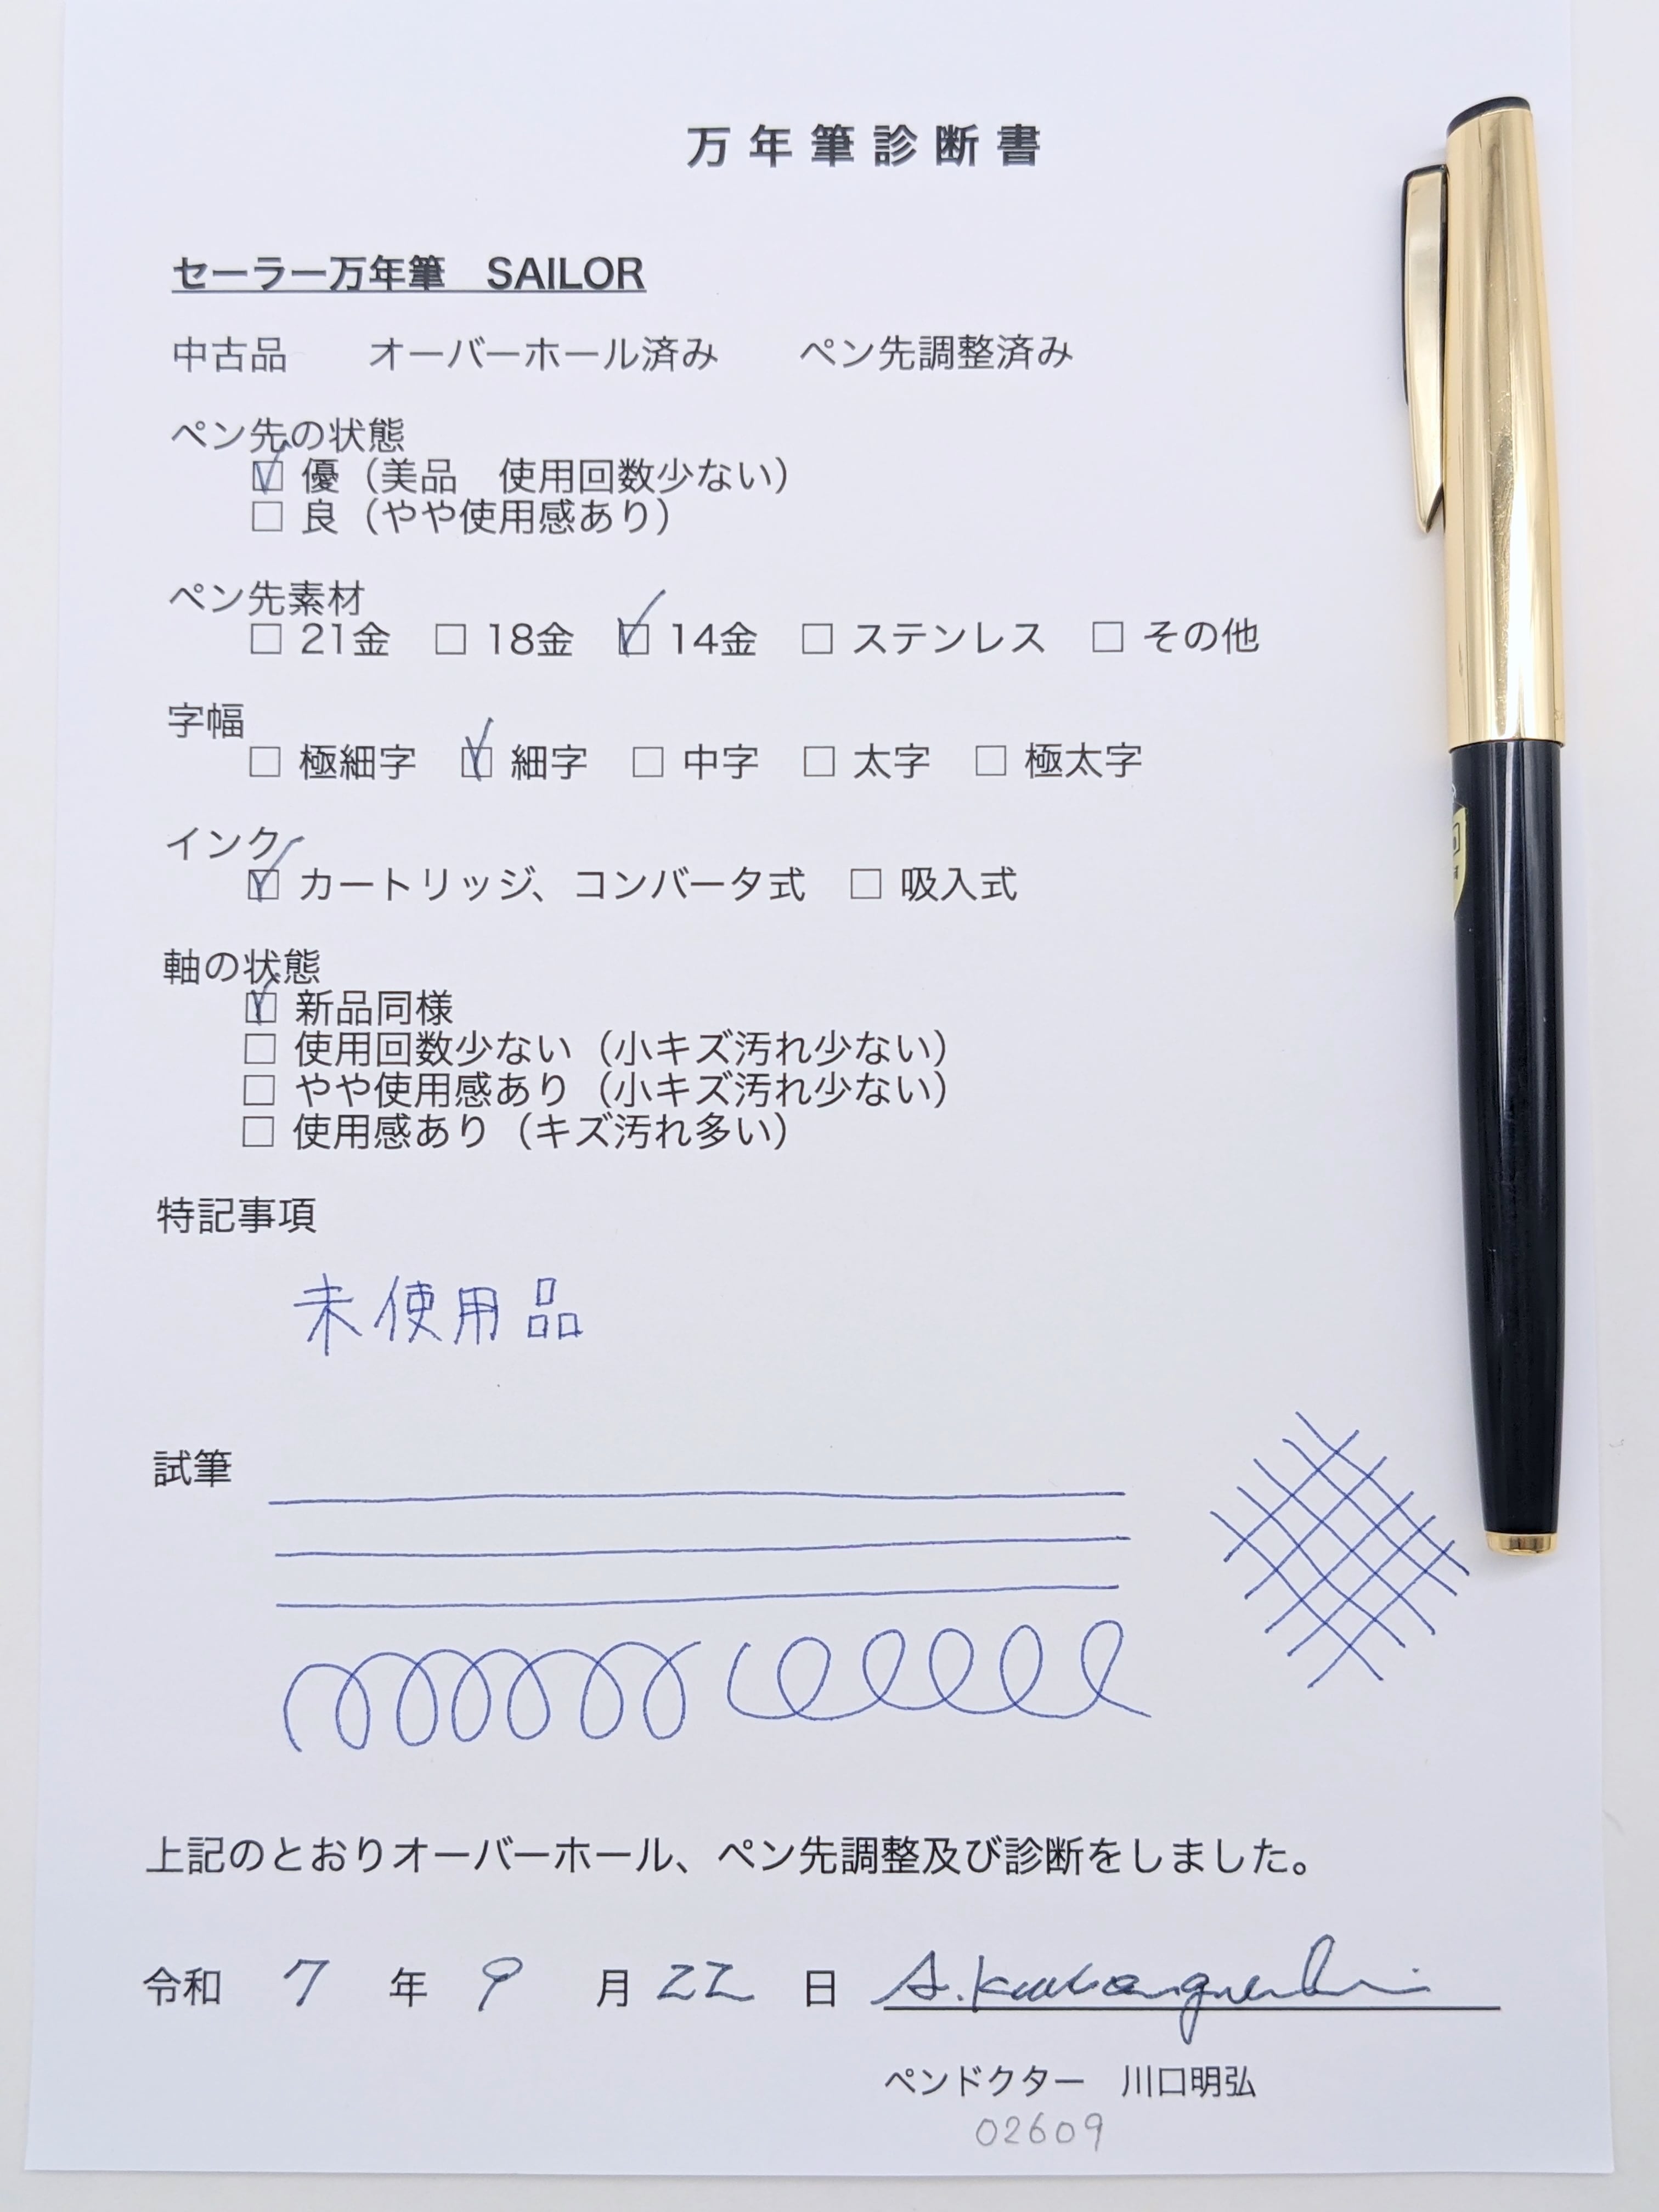 万年筆診断書
セーラー万年筆　SAILOR
中古品　　オーバーホール済み　　ペン先調整済み
ペン先の状態
☑ 優（美品　使用回数少ない）
□ 良（やや使用感あり）
ペン先素材
□ 21金　□ 18金　☑ 14金　□ ステンレス　□ その他
字幅
□ 極細字　☑ 細字　□ 中字　□ 太字　□ 極太字
インク
☑ カートリッジ、コンバータ式　□ 吸入式
軸の状態
☑ 新品同様
□ 使用回数少ない（小キズ汚れ少ない）
□ やや使用感あり（小キズ汚れ少ない）
□ 使用感あり（キズ汚れ多い）
特記事項
未使用品
試筆
上記のとおりオーバーホール、ペン先調整及び診断をしました。
令和 7 年 9 月 22 日 A.Kawaguchi
ペンドクター　川口明弘
02609